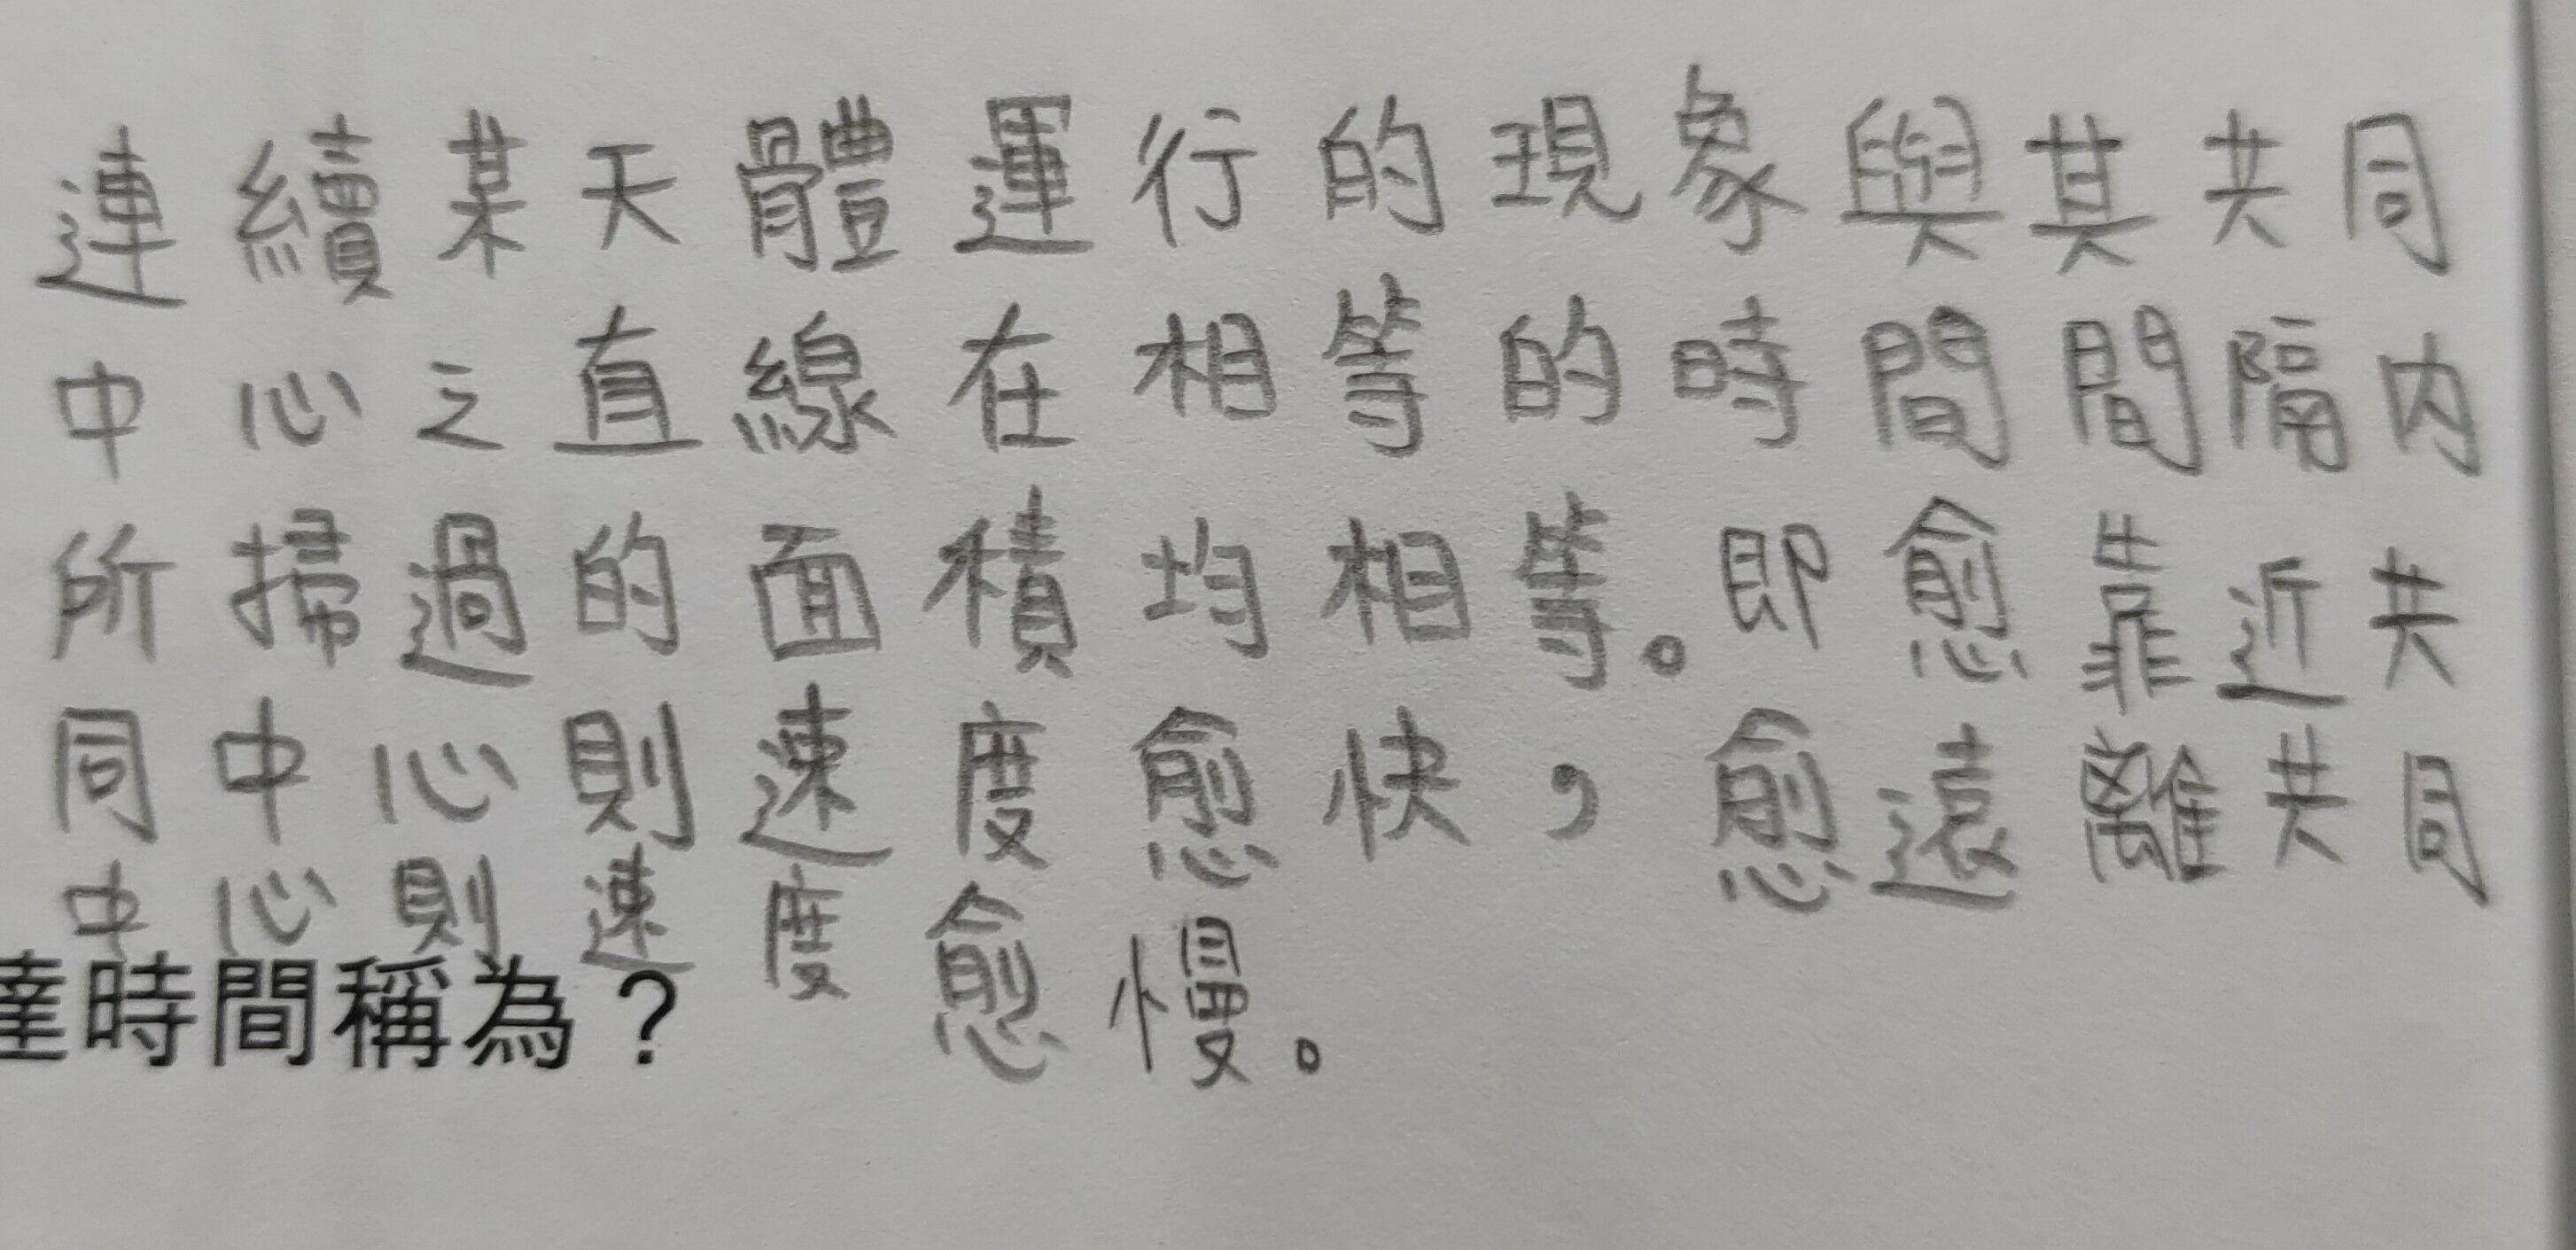 連續某天體運行的現象與其共同
中心之直線在相等的時間間隔內
所掃過的面積均相等。即愈靠近共
同中心則速度愈快，愈遠離共同
中心則速度愈慢。
達時間稱為？